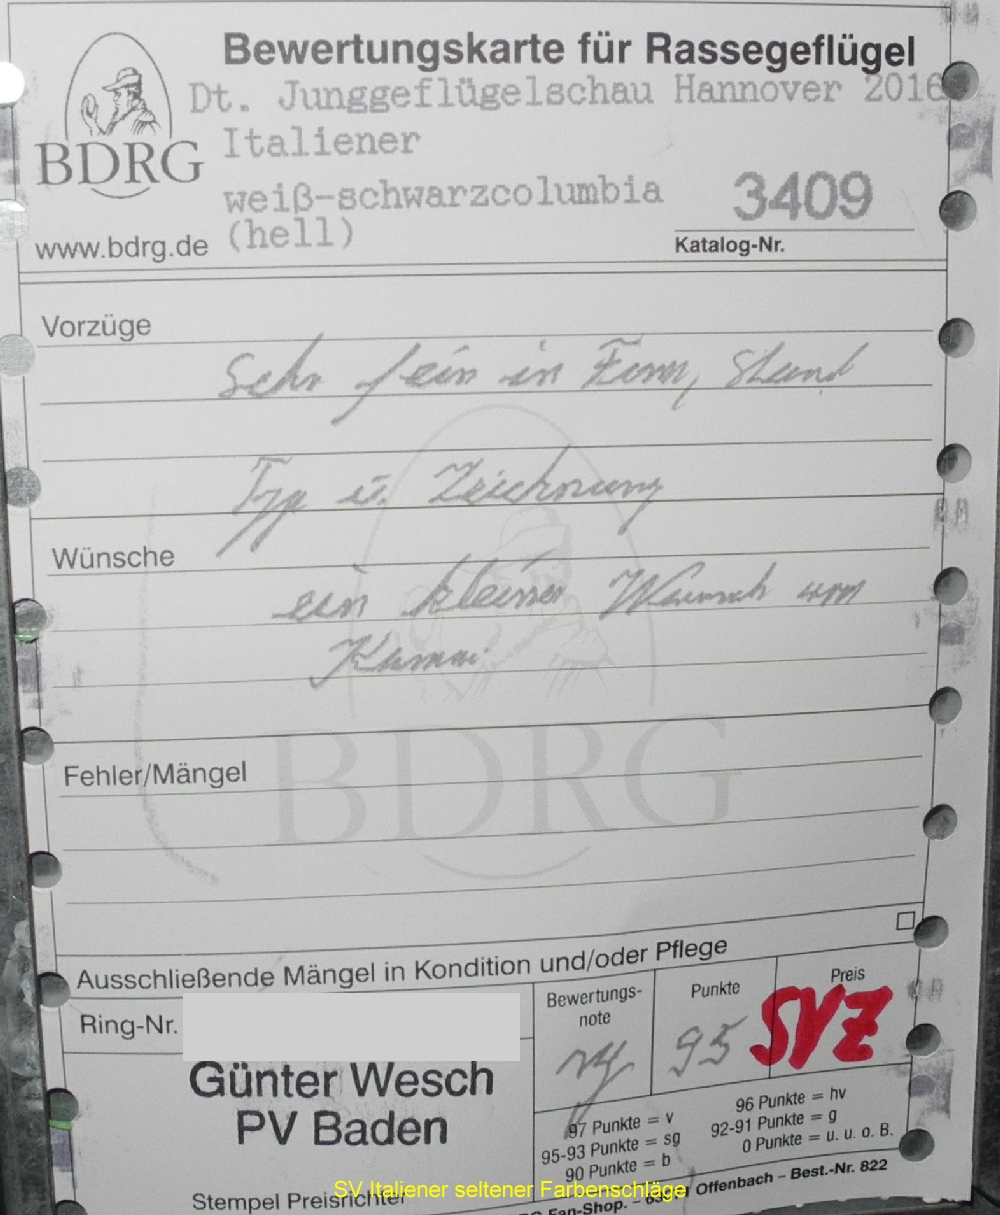 Bewertungskarte für Rassegeflügel
Dt. Junggeflügelschau Hannover 2016
BDRG
Italiener
weiß-schwarzcolumbia
(hell)
3409
www.bdrg.de
Katalog-Nr.
Vorzüge
Sehr fein in Form, Stand
Typ u. Zeichnung
Wünsche
ein kleiner Wunsch vom
Kamm
BDRG
Fehler/Mängel
Ausschließende Mängel in Kondition und/oder Pflege
Ring-Nr.
Bewertungs-
note
Punkte
Preis
sg
95
SVZ
Günter Wesch
PV Baden
97 Punkte = v
96 Punkte = hv
95-93 Punkte = sg
92-91 Punkte = g
90 Punkte = b
0 Punkte = u. u. o. B.
Stempel Preisrichter
Fan-Shop. – Offenbach – Best.-Nr. 822
SV Italiener seltener Farbenschläge